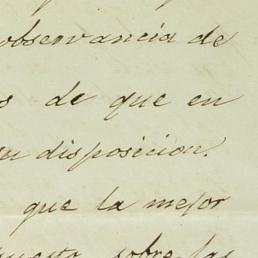 observancia de
s de que en
su disposicion.
que la mejor
puesto sobre las